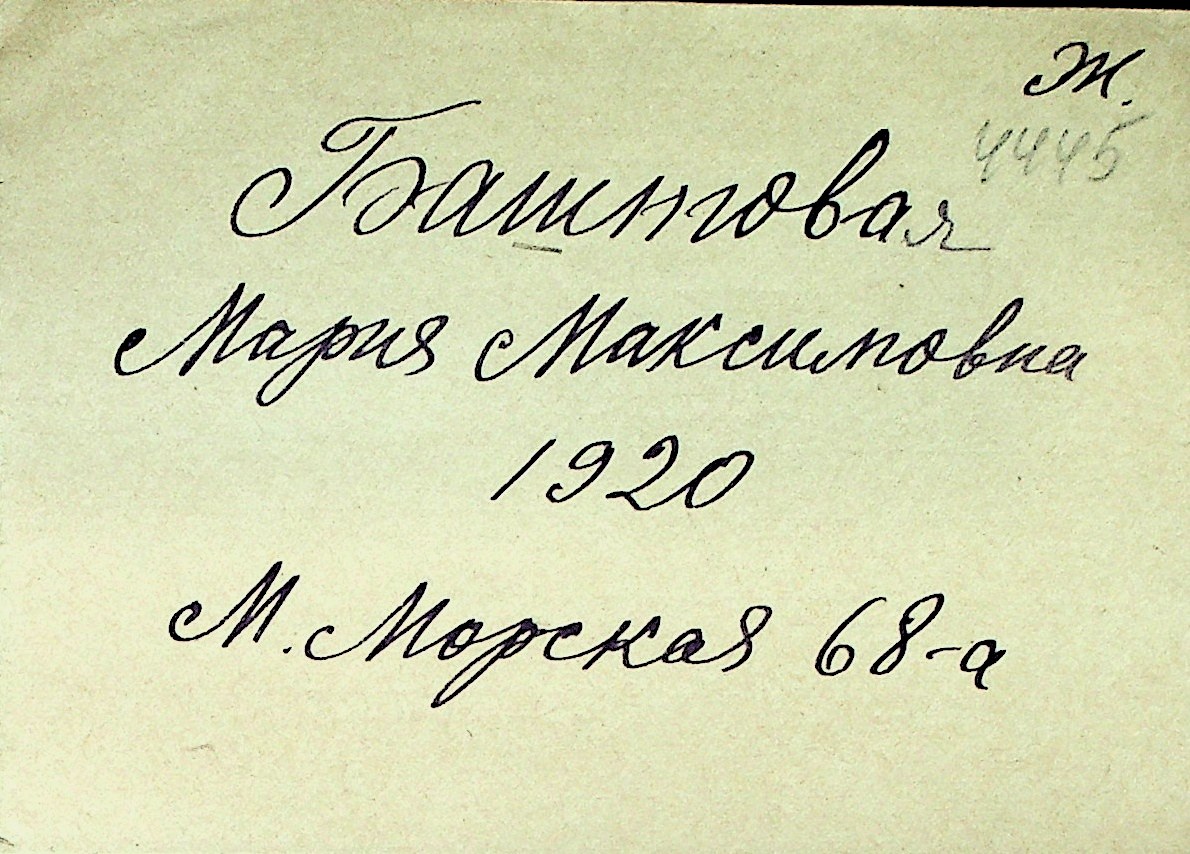 Ж.
4445
Баштовая
Мария Максимовна
1920
М. Морская 68-а